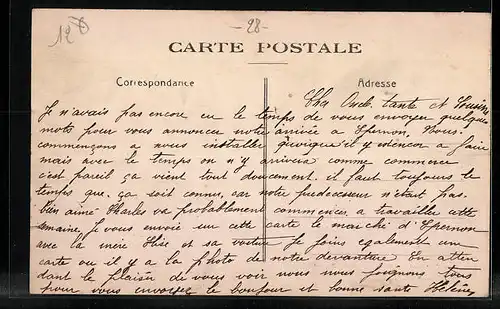 12 
-28-
CARTE POSTALE
Correspondance
Adresse
Cher Oncle tante et Cousins
Je n'avais pas encore eu le temps de vous envoyer quelque
mots pour vous annoncer notre arrivée a Epernon, Nous
commençons a nous installer quoiqu'il y est encor a faire
mais avec le temps on n'y arrivera comme commerce
c'est pareil ça vient tout doucement. il faut toujours le
temps que ça soit connu, car notre predecesseur n'était pas
bien aimé Charles va probablement commencer a travailler cette
semaine, je vous envoie sur cette carte le marché d'Epernon
avec la mère et sa voiture Je joins egalement une
carte ou il y a la photo de notre devanture En atten
dant le plaisir de vous voir nous nous joignons tous
pour vous envoyer le bonjour et bonne santé Helène